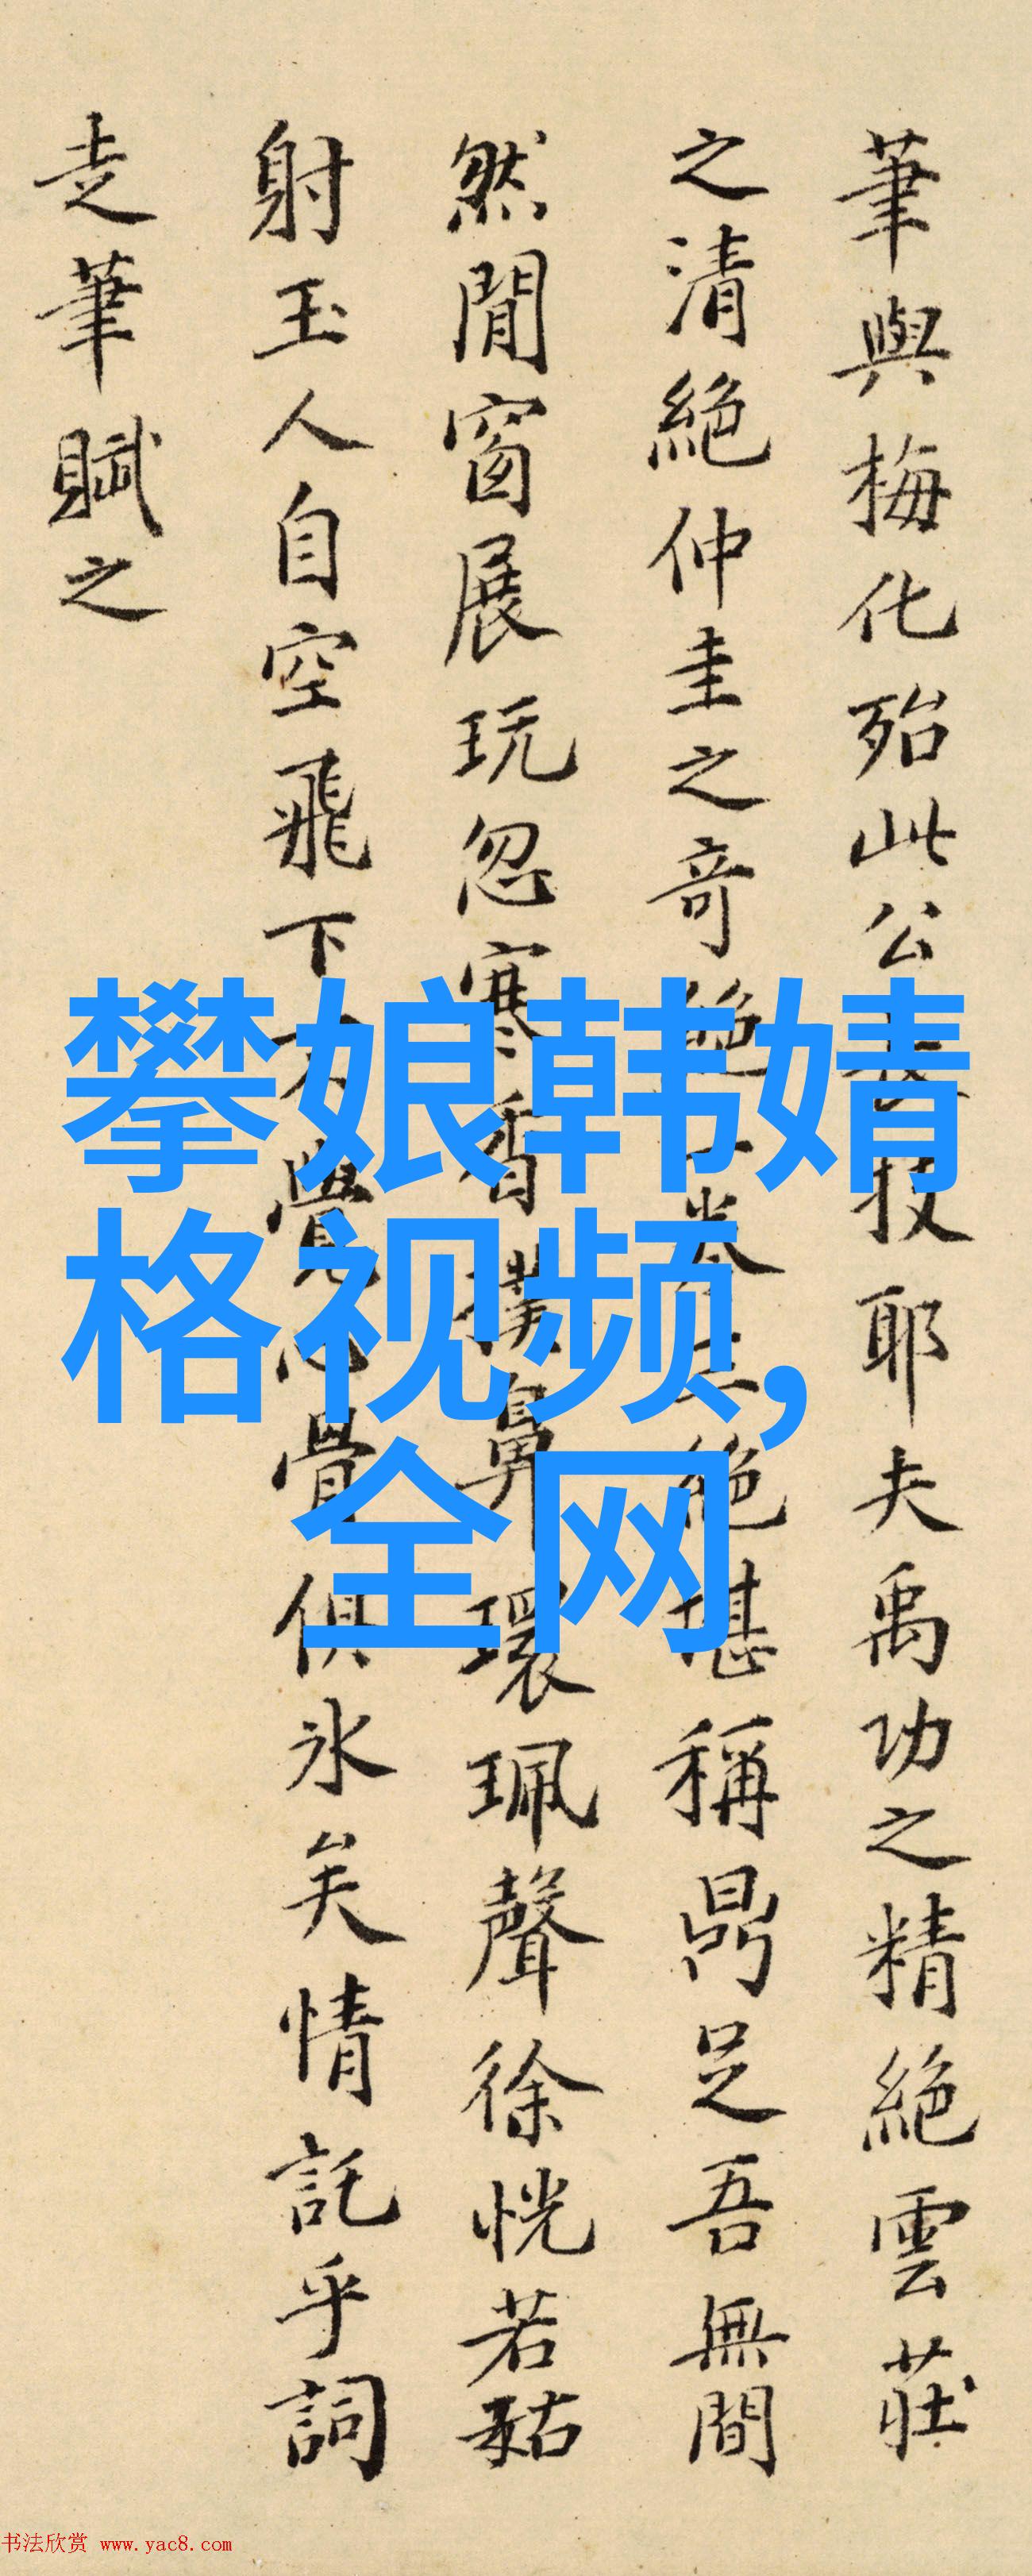 筆與梅化殆此公技耶夫禹功之精絶雲莊
之清絶仲圭之奇絶一卷三絶堪稱鼎足吾無間
然閒窗展玩忽寒香撲鼻環珮聲徐恍若䂞
射玉人自空飛下不覺心骨俱氷矣情託乎詞
走筆賦之
攀娘韩婧
格视频,
全网
书法欣赏 www.yac8.com